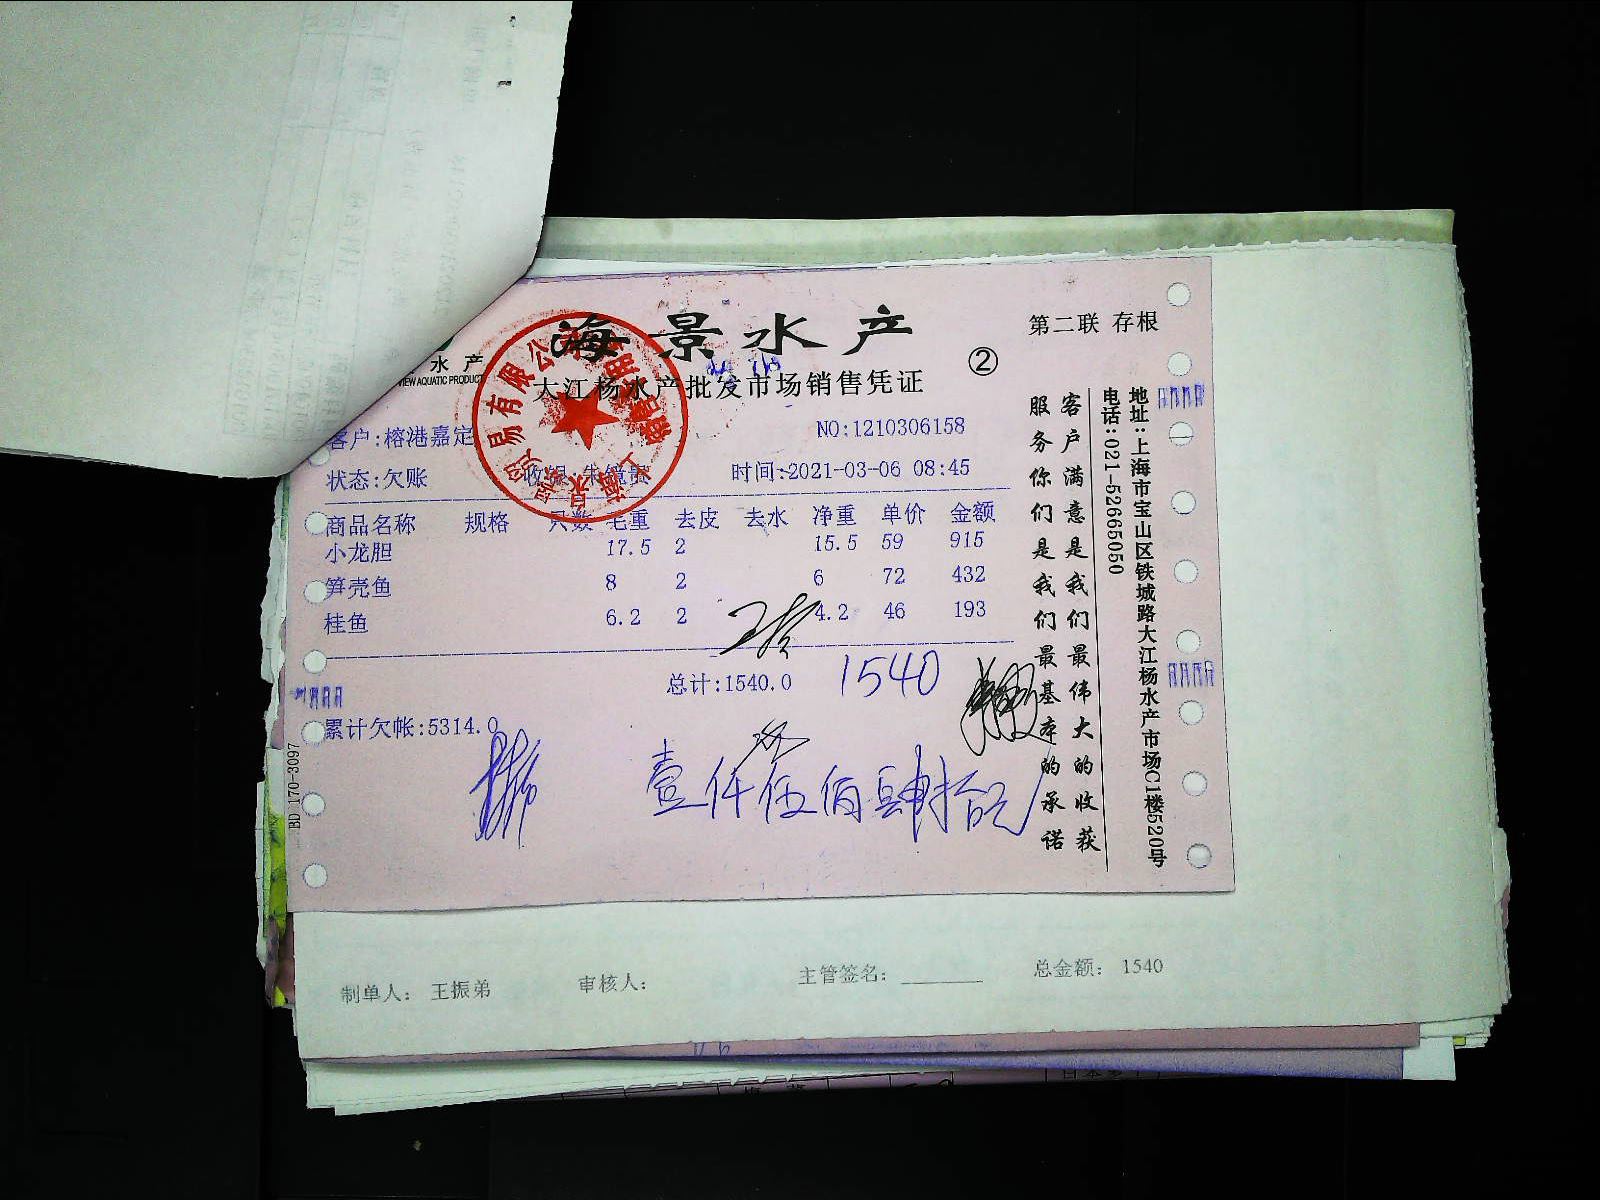 海景水产
水产
VIEW AQUATIC PRODUCT
大江杨水产批发市场销售凭证
②
第二联 存根
客户:榕港嘉定
NO:1210306158
状态:欠账
收银:朱镜贵
时间:2021-03-06 08:45
商品名称 规格 只数 毛重 去皮 去水 净重 单价 金额
小龙胆 17.5 2 15.5 59 915
笋壳鱼 8 2 6 72 432
桂鱼 6.2 2 4.2 46 193
总计:1540.0
1540
累计欠帐:5314.0
壹仟伍佰肆拾元
客户满意是我们最伟大的收获
服务你们是我们最基本的承诺
地址:上海市宝山区铁城路大江杨水产市场C1楼520号
电话:021-52665050
BD 170-3097
贸易有限公司
上海
制单人: 王振弟
审核人:
主管签名:
总金额: 1540